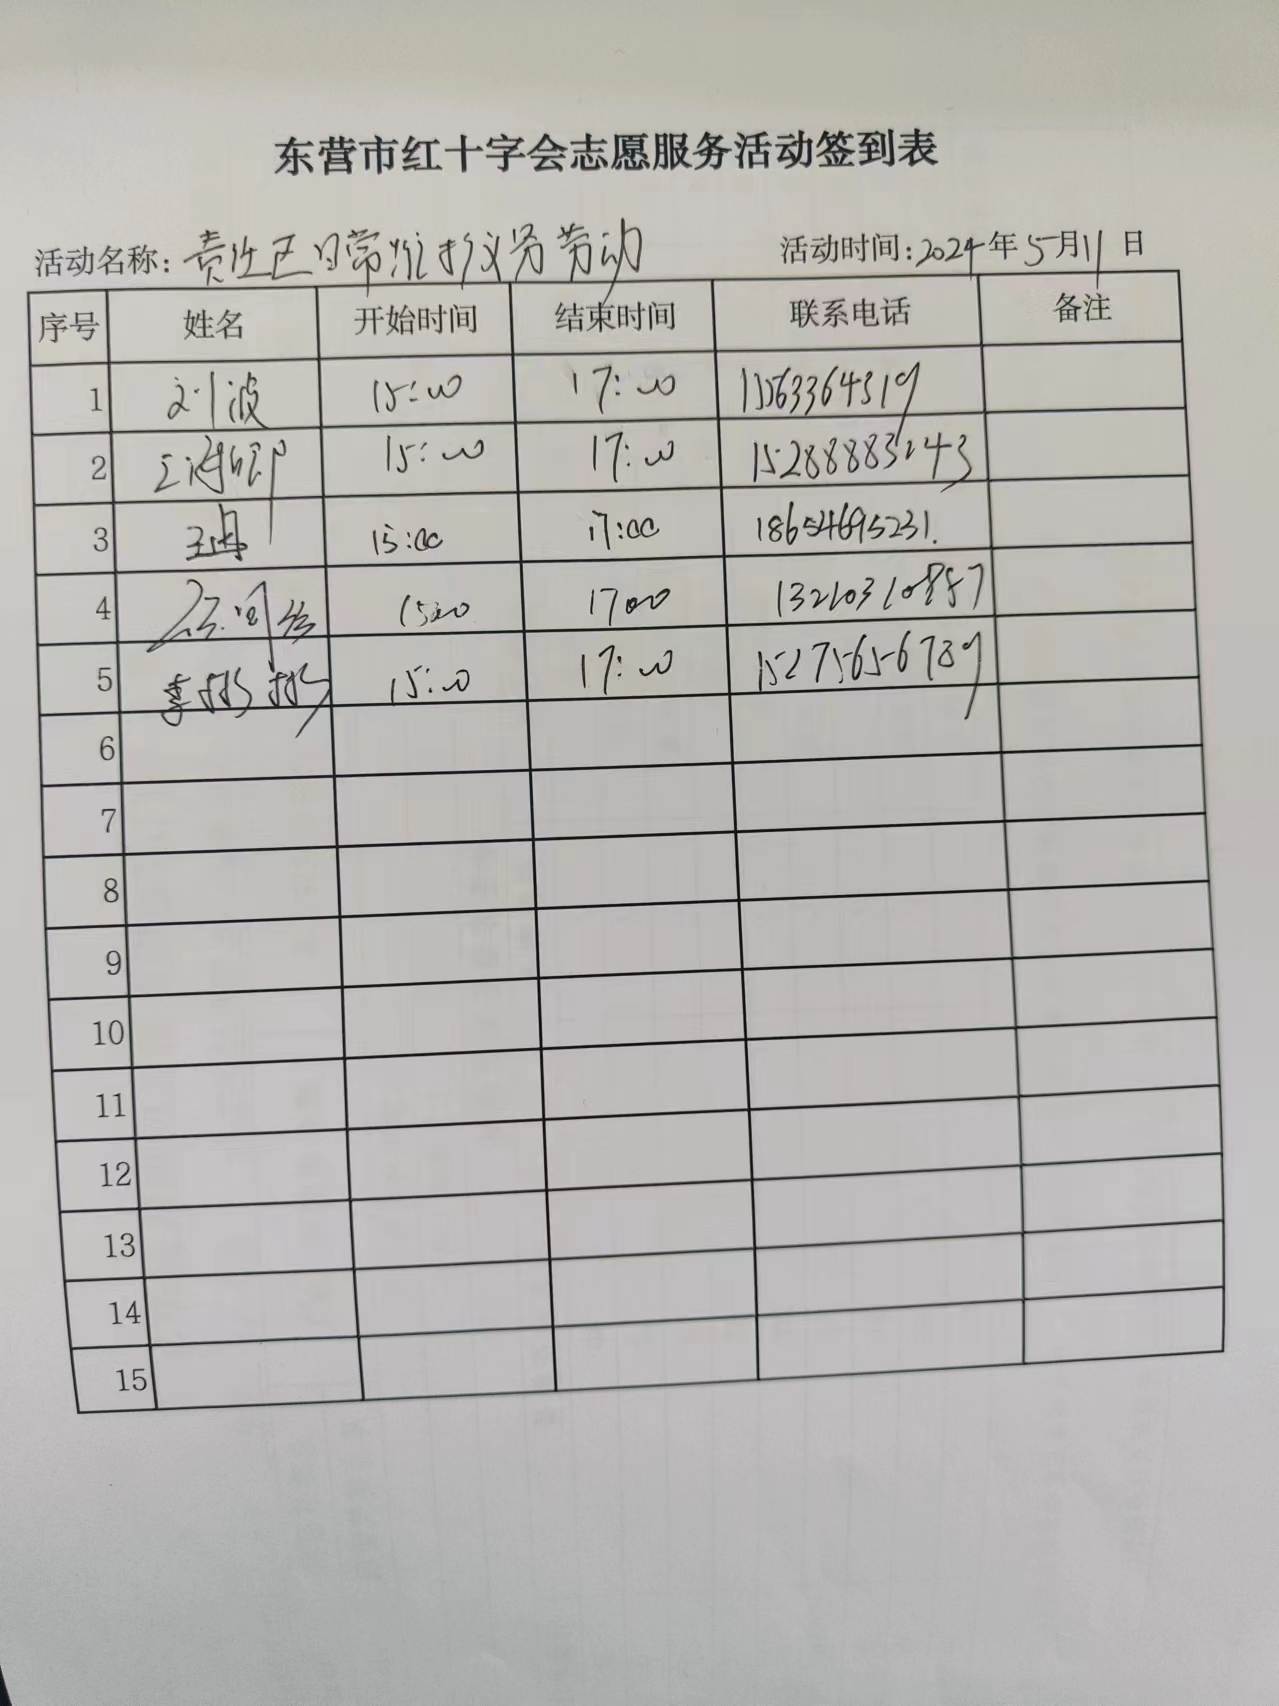 东营市红十字会志愿服务活动签到表
活动名称：责任区日常维护义务劳动 活动时间：2024年5月11日
序号 姓名 开始时间 结束时间 联系电话 备注
1 刘波 15:00 17:00 13563364319
2 15:00 17:00 15288883243
3 王冉 15:00 17:00 18654695231.
4 1500 1700 13210310887
5 李彬彬 15:00 17:00 15275656789
6
7
8
9
10
11
12
13
14
15